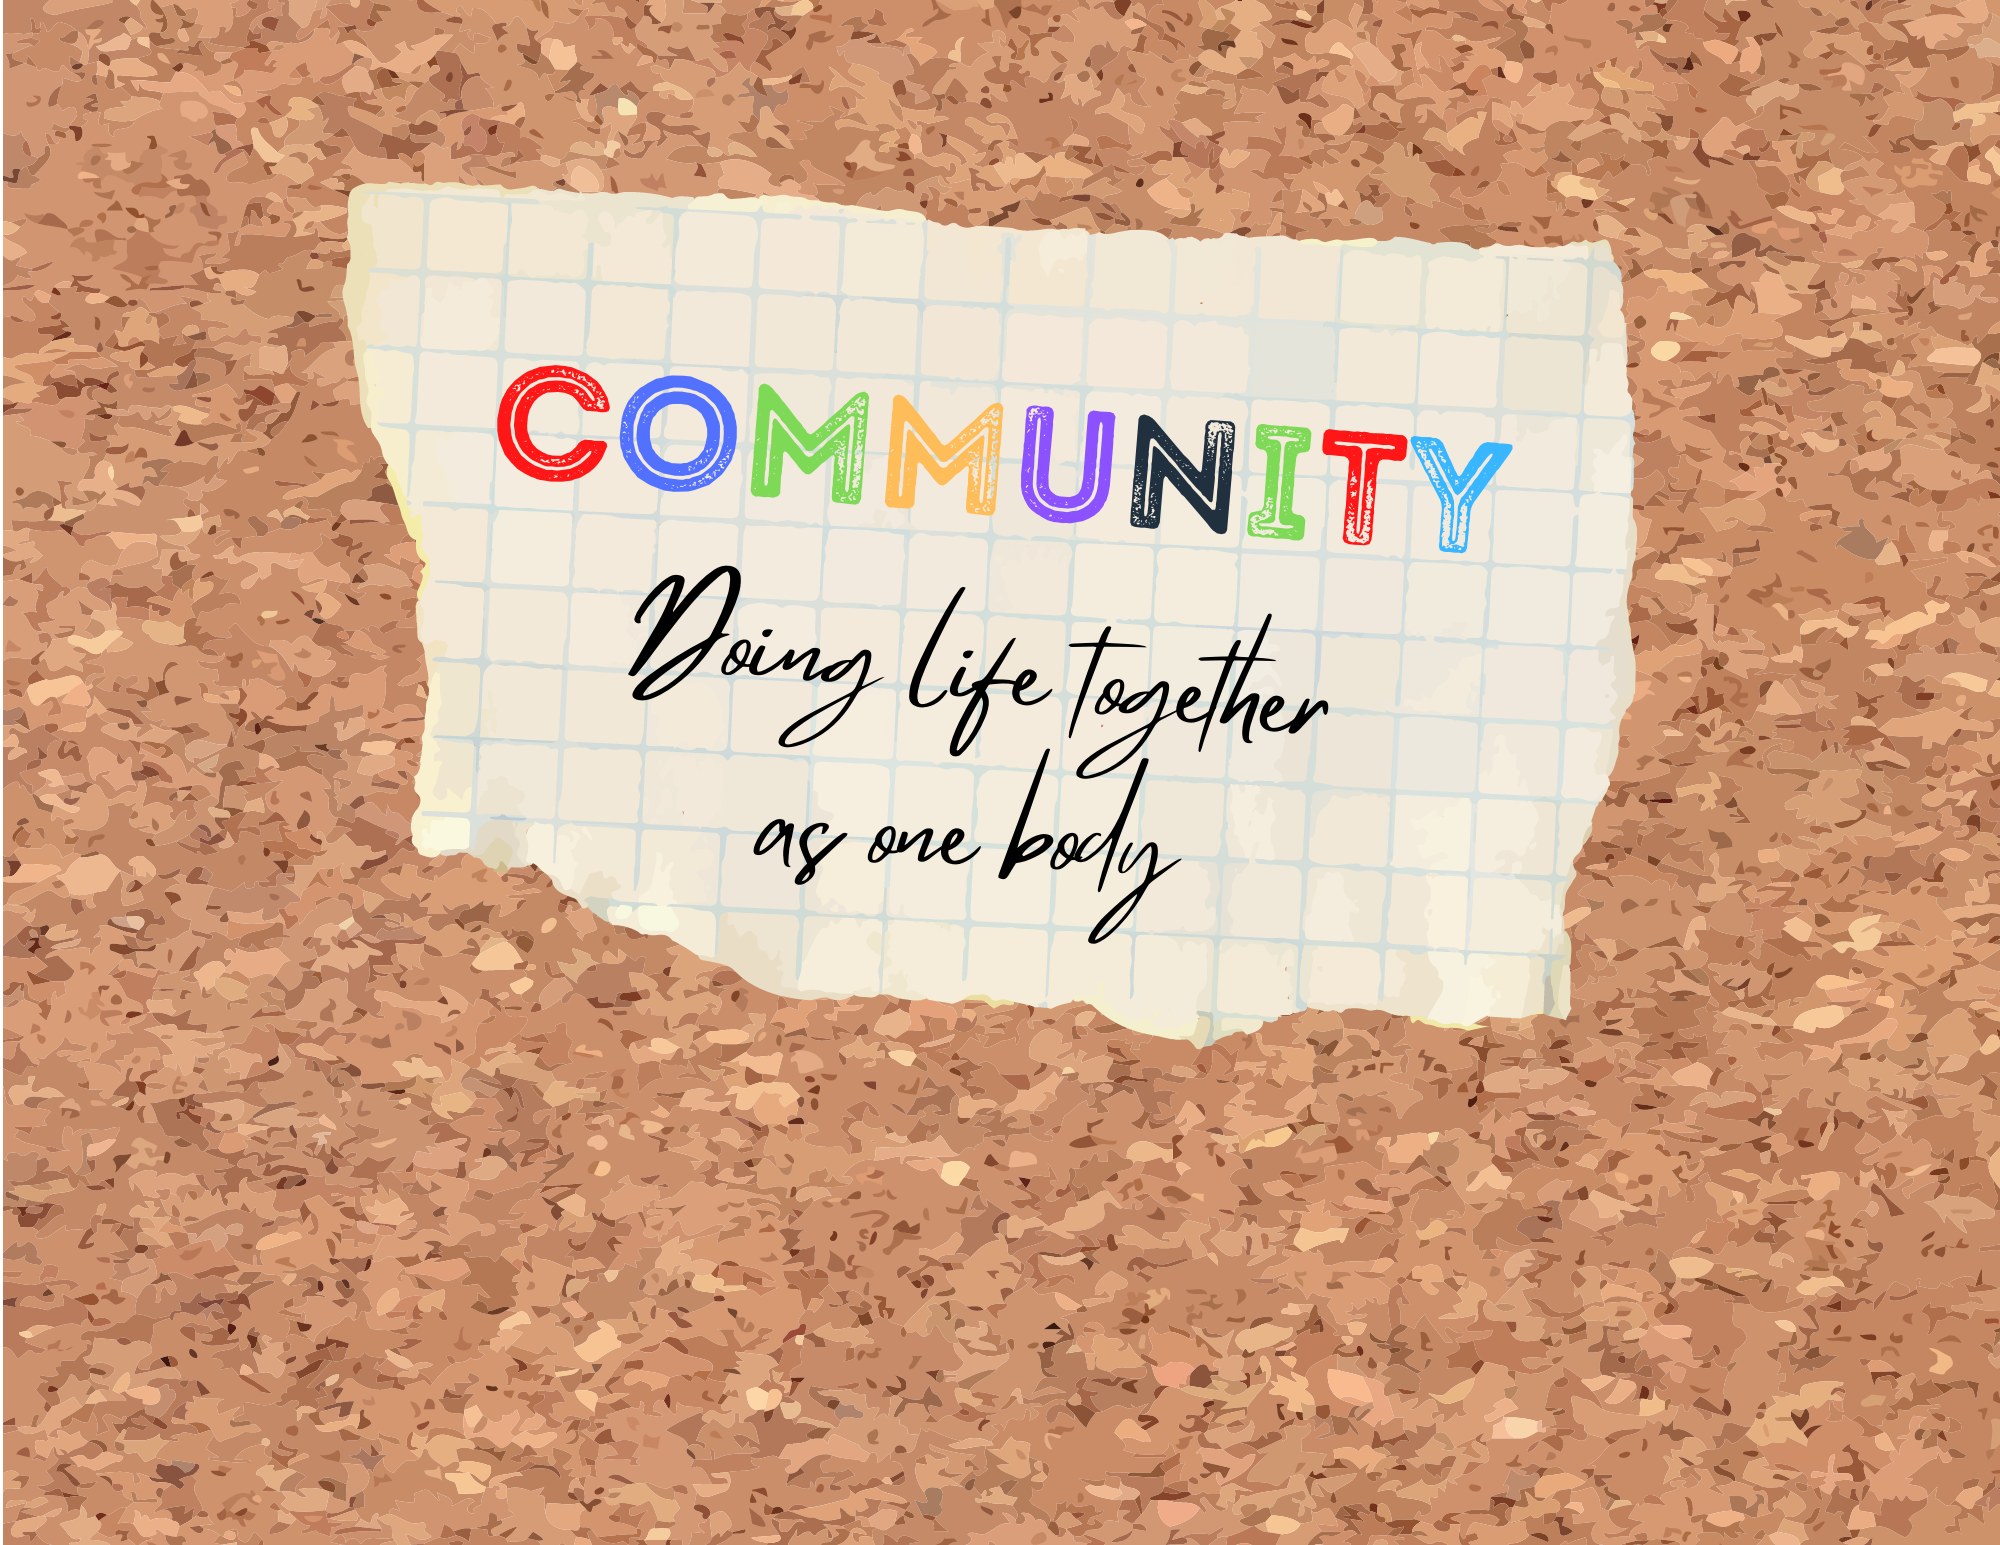 COMMUNITY
Doing life together
as one body